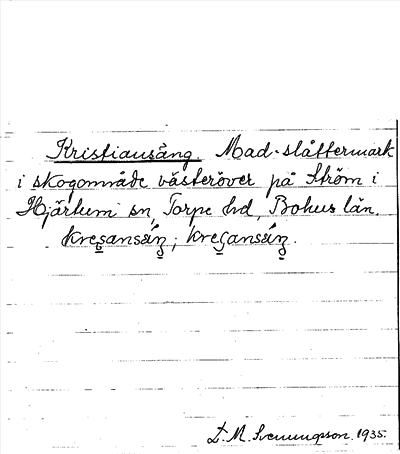 Kristiansäng. Mad-slåttermark
i skogområde västeröver på Ström i
Hjärtum sn, Torpe hd, Bohus län.
kresansáŋ; kreçansáŋ.
M. Svenungsson. 1935.